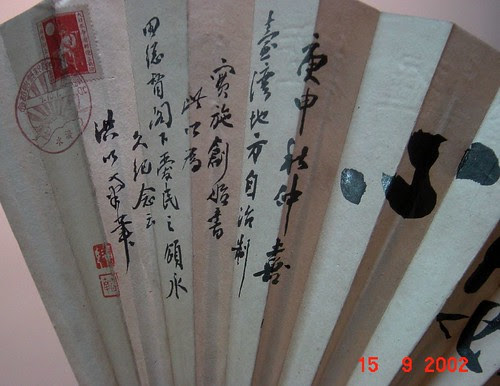 庚申秋仲喜
臺灣地方自治制
實施創始書
此以為
田總督閣下愛民之頌永
久紀念云
洪以南筆
15 9 2002